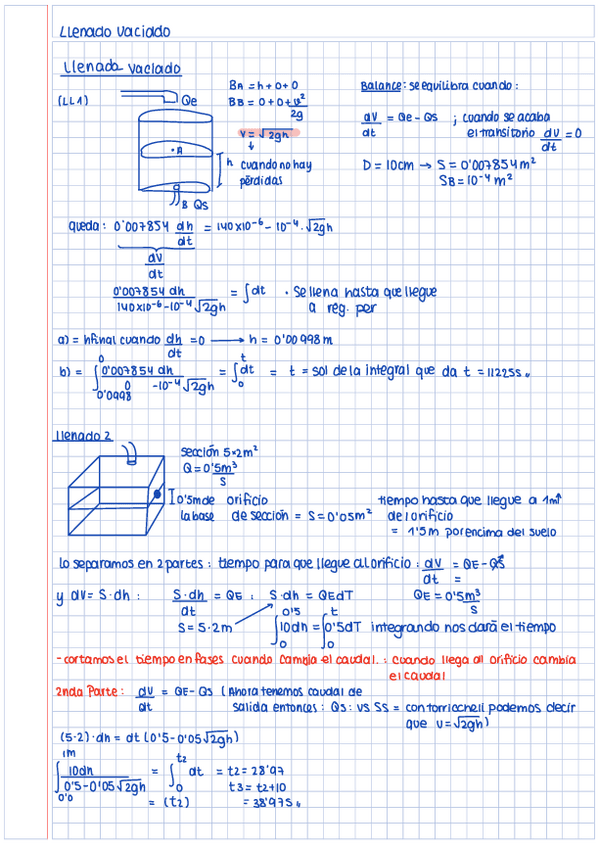 Llenado Vaciado
Llenado Vaciado
(LL1)
Qe
BA = h + 0 + 0
BB = 0 + 0 + v²/2g
v = √2gh
h cuando no hay
pérdidas
A
B Qs
Balance: se equilibra cuando:
dV/dt = Qe - Qs ; cuando se acaba
el transitorio dV/dt = 0
D = 10cm → S = 0'007854 m²
SB = 10⁻⁴ m²
queda: 0'007854 dh/dt = 140x10⁻⁶ - 10⁻⁴ · √2gh
dV/dt
0'007854 dh / 140x10⁻⁶ - 10⁻⁴ √2gh = ∫dt · Se llena hasta que llegue
a reg. per
a) = hfinal cuando dh/dt = 0 → h = 0'00998 m
b) = ∫ 0'0998 0 0'007854 dh / 0 - 10⁻⁴ √2gh = ∫ 0 t dt = t = sol de la integral que da t = 11225s
llenado 2
sección 5x2m²
Q = 0'5 m³/s
0'5m de
la base
orificio
de sección = S = 0'05m²
tiempo hasta que llegue a 1m↑
del orificio
= 1'5m por encima del suelo
lo separamos en 2 partes: tiempo para que llegue al orificio: dV/dt = QE - QS
=
y dV = S·dh : S·dh/dt = QE : S·dh = QE dT
QE = 0'5 m³/s
S = 5·2m
∫ 0 0'5 10dh = ∫ 0 t 0'5dT integrando nos dará el tiempo
- cortamos el tiempo en fases cuando cambia el caudal. : cuando llega al orificio cambia
el caudal
2nda Parte: dV/dt = QE - Qs (Ahora tenemos caudal de
salida entonces: Qs: vs SS = con torriccheli podemos decir
que v = √2gh)
(5·2)·dh = dt (0'5 - 0'05√2gh)
∫ 0'0 1m 10dh / 0'5 - 0'05√2gh = ∫ 0 t2 dt = t2 = 28'97
t3 = t2 + 10
= (t2) = 38'97s